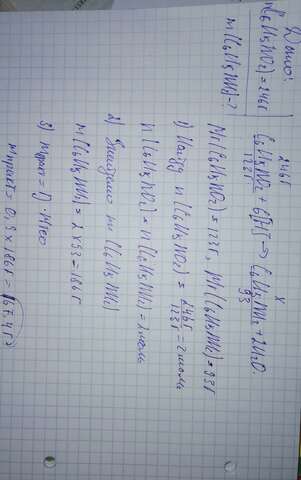 Дано:
m(C₆H₅NO₂) = 246г
m(C₆H₅NH₂) - ?
246г x
C₆H₅NO₂ + 6[H] → C₆H₅NH₂ + 2H₂O.
123г 93
Mr(C₆H₅NO₂) = 123г, Mr(C₆H₅NH₂) = 93г
1) Найду n(C₆H₅NO₂) = 246г/123г = 2 моль
n(C₆H₅NO₂) = n(C₆H₅NH₂) = 2 моль
2) m(C₆H₅NH₂)
m(C₆H₅NH₂) = 2 × 93 = 186г
3) mпрак = η · mтео
mпракт = 0,9 × 186г = 167,4г